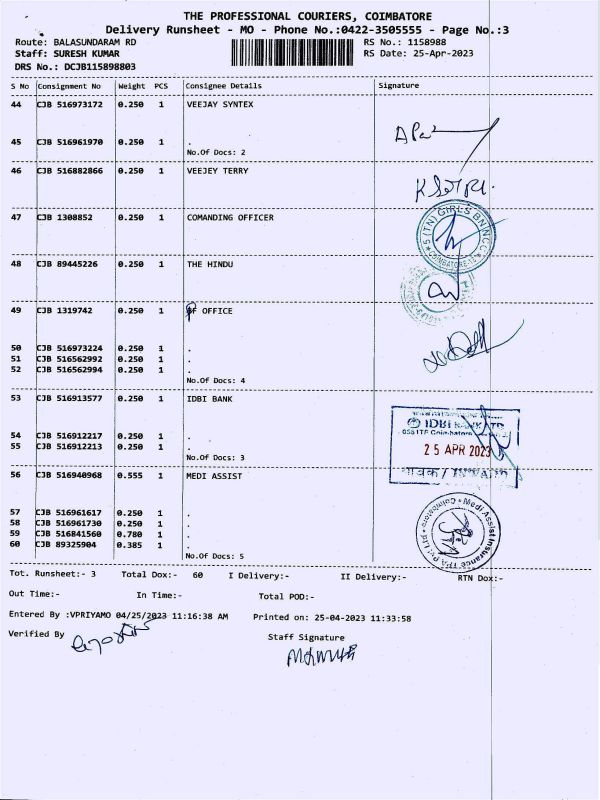 THE PROFESSIONAL COURIERS, COIMBATORE
Delivery Runsheet - MO - Phone No.:0422-3505555 - Page No.:3
Route: BALASUNDARAM RD RS No.: 1158988
Staff: SURESH KUMAR RS Date: 25-Apr-2023
DRS No.: DCJB115898803
S No Consignment No Weight PCS Consignee Details Signature
44 CJB 516973172 0.250 1 VEEJAY SYNTEX
45 CJB 516961970 0.250 1 .
No.Of Docs: 2
46 CJB 516882866 0.250 1 VEEJEY TERRY
47 CJB 1308852 0.250 1 COMANDING OFFICER
5 (TN) GIRLS BN NCC
COIMBATORE-18
48 CJB 89445226 0.250 1 THE HINDU
49 CJB 1319742 0.250 1 OFFICE
50 CJB 516973224 0.250 1 .
51 CJB 516562992 0.250 1 .
52 CJB 516562994 0.250 1 .
No.Of Docs: 4
53 CJB 516913577 0.250 1 IDBI BANK
IDBI BANK LTD
25 APR 2023
आवक / INWARD
54 CJB 516912217 0.250 1 .
55 CJB 516912213 0.250 1 .
No.Of Docs: 3
56 CJB 516940968 0.555 1 MEDI ASSIST
Medi Assist Insurance TPA Pvt Ltd
Coimbatore
57 CJB 516961617 0.250 1 .
58 CJB 516961730 0.250 1 .
59 CJB 516841560 0.780 1 .
60 CJB 89325904 0.385 1 .
No.Of Docs: 5
Tot. Runsheet:- 3 Total Dox:- 60 I Delivery:- II Delivery:- RTN Dox:-
Out Time:- In Time:- Total POD:-
Entered By :VPRIYAMO 04/25/2023 11:16:38 AM Printed on: 25-04-2023 11:33:58
Verified By Staff Signature